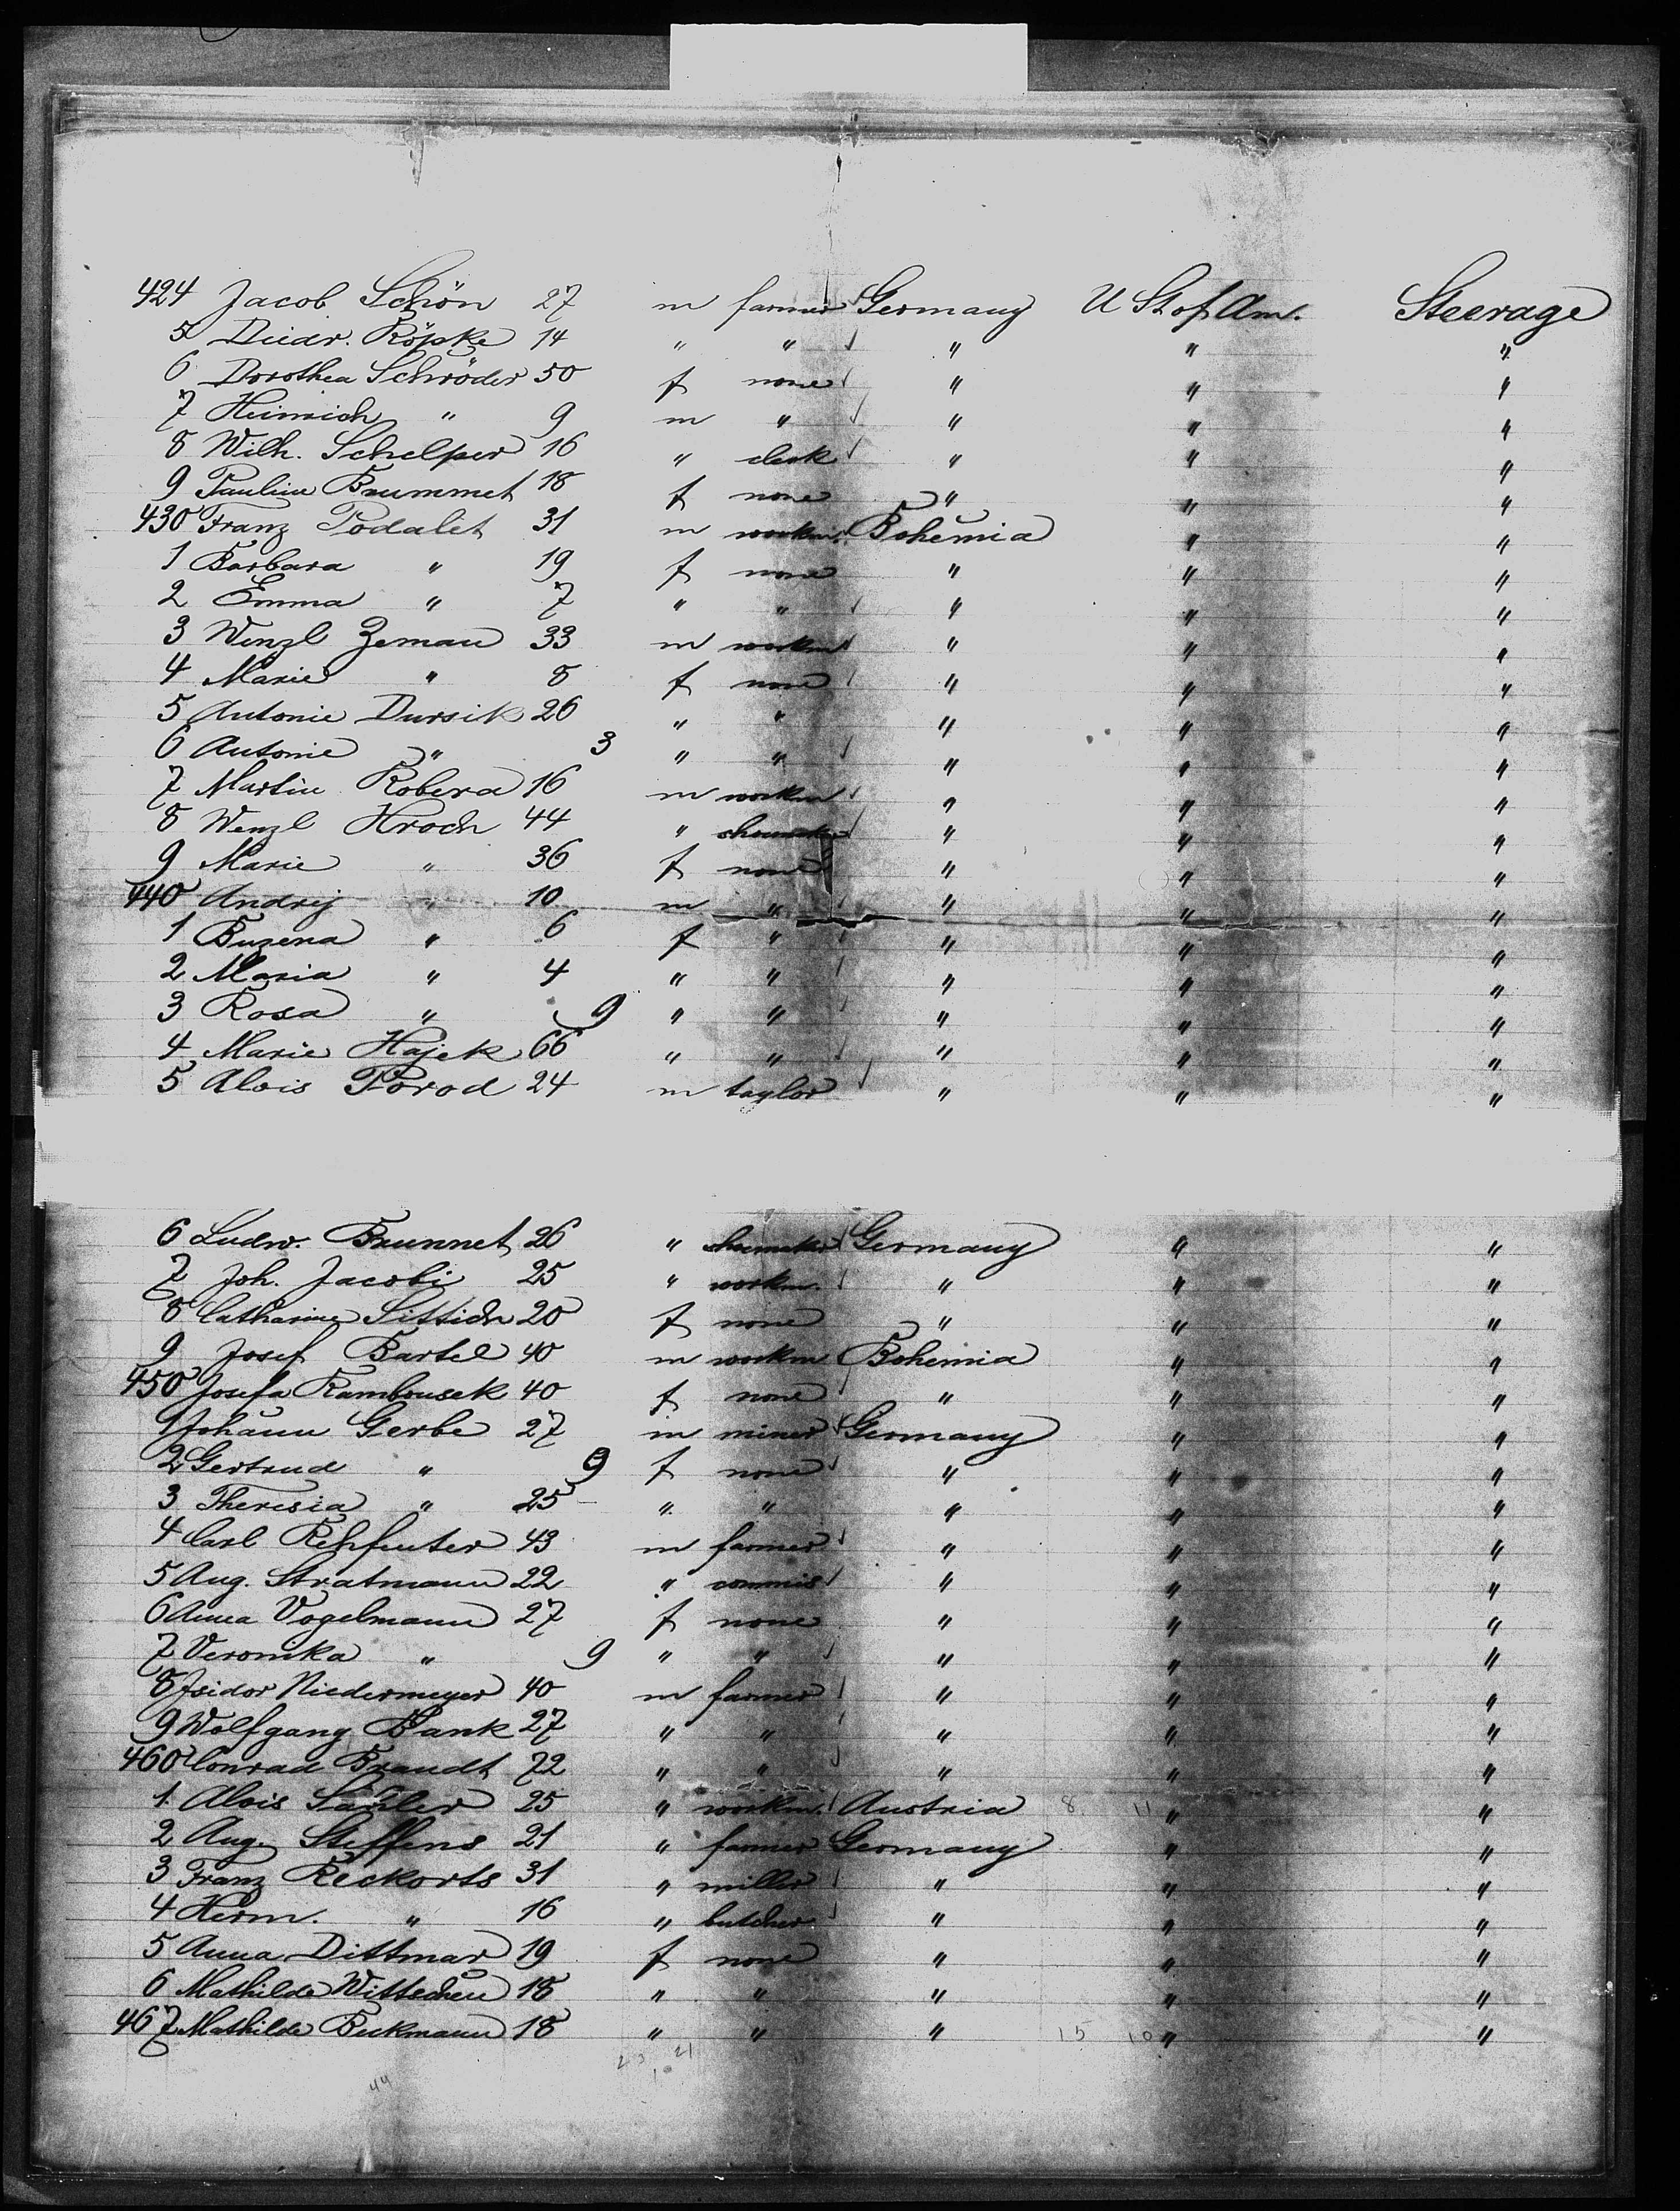 424 Jacob Schön 27 m farmer Germany U St of Am. Steerage
5 Diedr. Röpke 14 " " " " "
6 Dorothea Schröder 50 f none " " "
7 Heinrich " 9 m " " " "
8 Wilh. Schelper 16 " clerk " " "
9 Pauline Brummet 18 f none " " "
430 Franz Podalet 31 m workm. Bohemia " "
1 Barbara " 19 f none " " "
2 Emma " 7 " " " " "
3 Wenzl Zeman 33 m workm " " "
4 Marie " 8 f none " " "
5 Antonie Dursik 26 " " " " "
6 Antonie " 3 " " " " "
7 Martin Kobera 16 m workm " " "
8 Wenzl Hroch 44 " shoemaker " " "
9 Marie " 36 f none " " "
440 Andrej " 10 m " " " "
1 Buzena " 6 f " " " "
2 Maria " 4 " " " " "
3 Rosa " 9 " " " " "
4 Marie Hajek 66 " " " " "
5 Alois Porod 24 m taylor " " "
6 Ludw. Brunnet 26 " shoemaker Germany " "
7 Joh. Jacobi 25 " workm. " " "
8 Catharine Sittich 20 f none " " "
9 Josef Bartel 40 m workm Bohemia " "
450 Josefa Rambousek 40 f none " " "
1 Johann Gerbe 27 m miner Germany " "
2 Gertrud " 9 f none " " "
3 Theresia " 25 " " " " "
4 Carl 43 m farmer " " "
5 Aug. Stratmann 22 " commis " " "
6 Anna Vogelmann 27 f none " " "
7 Veronika " 9 " " " " "
8 Isidor Niedermeyer 40 m farmer " " "
9 Wolfgang Bank 27 " " " " "
460 Conrad Brandt 72 " " " " "
1 Alois 25 " workm. Austria 8 11 " "
2 Aug. Steffens 21 " farmer Germany " "
3 Franz Reckorts 31 " miller " " "
4 Herm. " 16 " butcher " " "
5 Anna Dittmar 19 f none " " "
6 Mathilde Wittechen 18 " " " " "
467 Mathilde Beckmann 18 " " " 15 10 " "
23 21
44 10